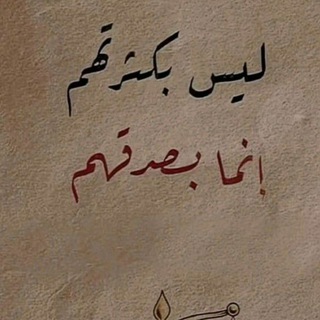 ليس بكثرتهم
إنما بصدقهم